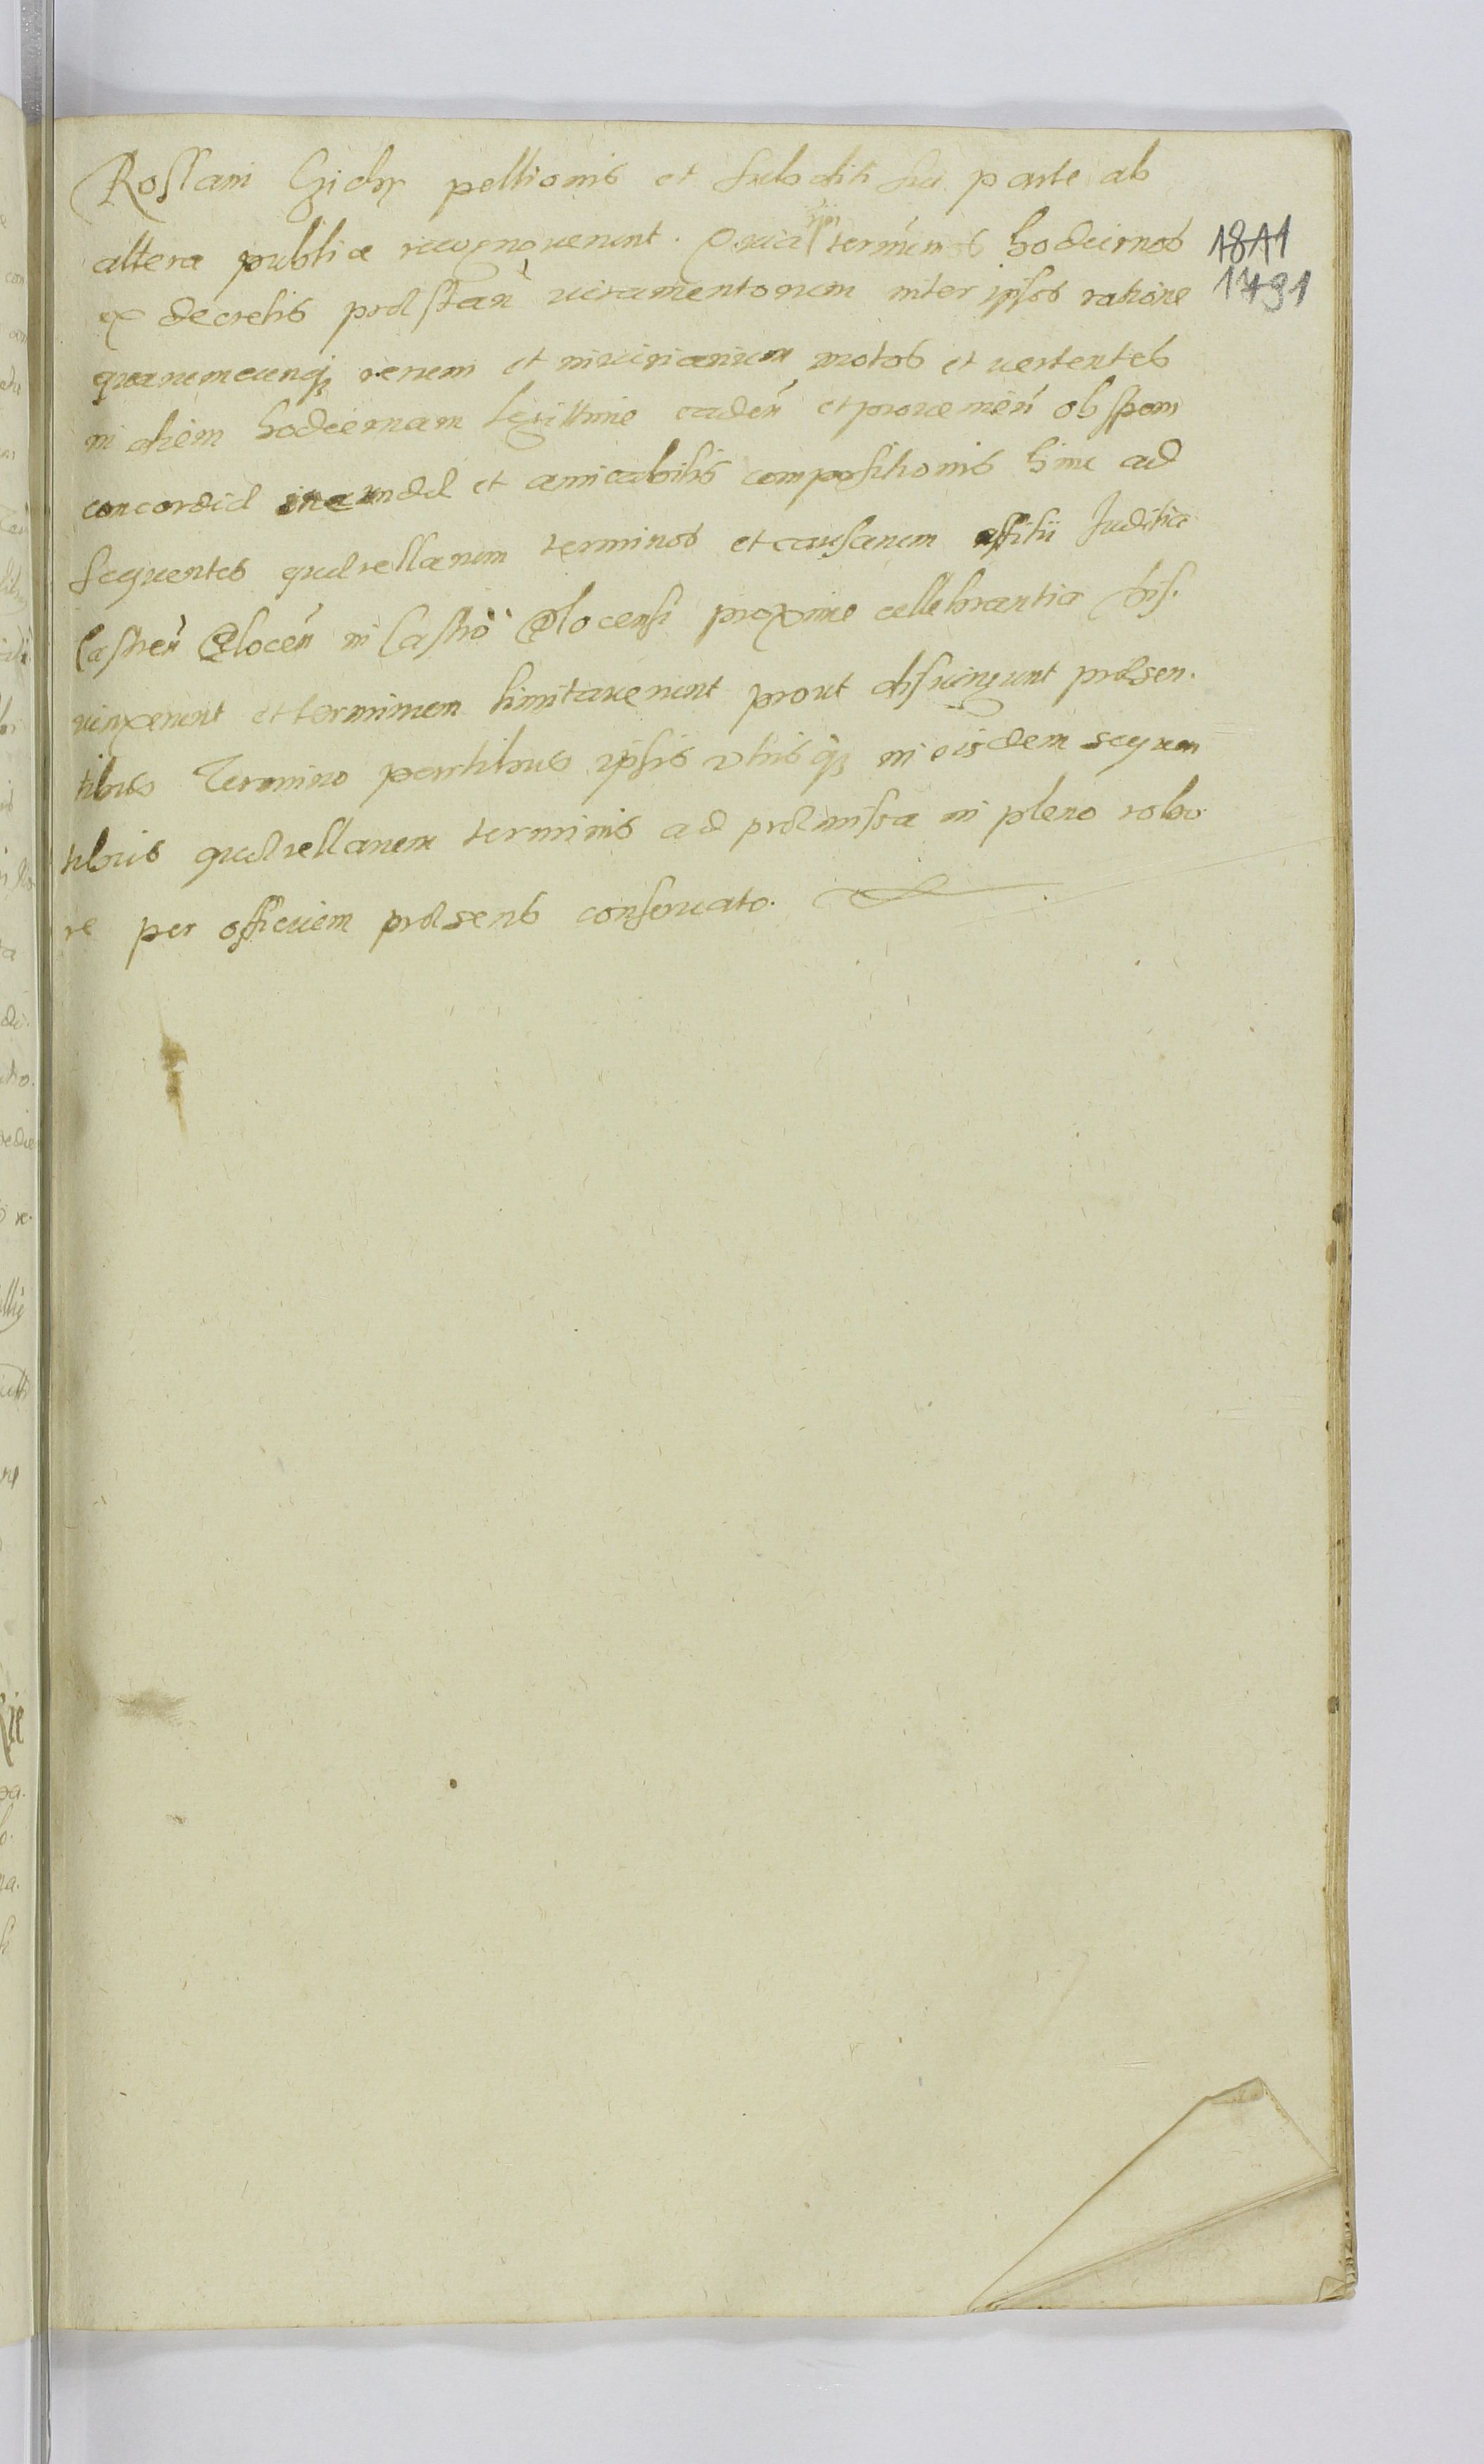 Rossani Gidy pellionis et subditi sui parte ab
altera publice recognoverunt. Quia ipsi terminos hodiernos
ex decretis præstan iuramentorum inter ipsos ratione
quarumcunq rerum et iniuriarum motos et vertentes
in diem hodiernam legittime caden et provenien ob spem
concordiæ ineundæ et amicabilis compositionis hinc ad
sequentes quærellarum terminos et causarum officii Juditia
Castren Plocen in Castro Plocensi proxime cellebrantia dis.
iunxerunt et terminum limitaverunt prout disiungunt præsen.
tibus Termino partibus ipsis utrisq in eisdem sequen
tibus quærellarum terminis ad præmissa in pleno robo
re per officium præsens conservato.
1811
1791